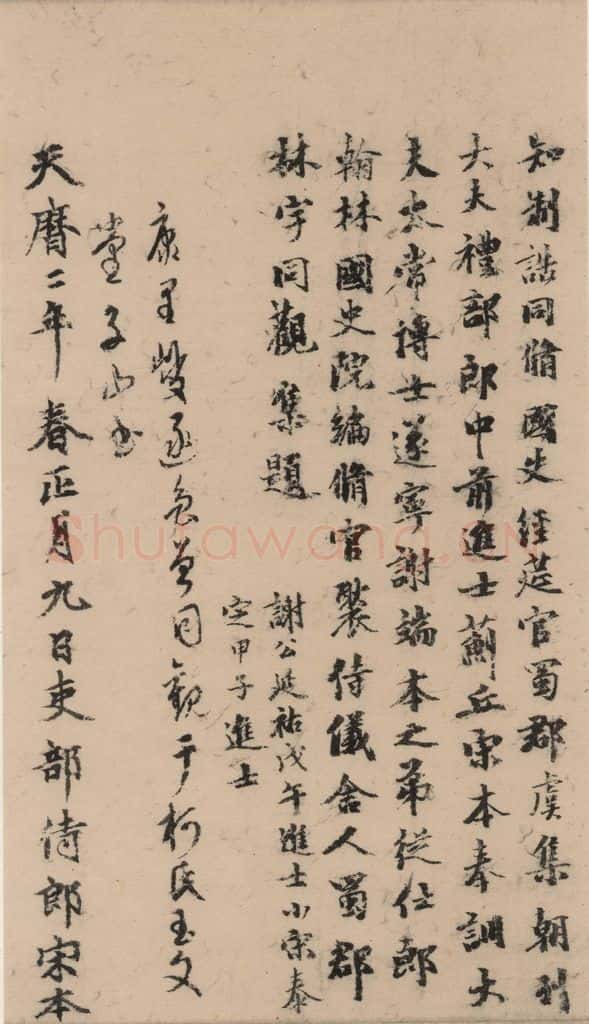 知制誥同脩國史經莚官蜀郡虞集朝列
大夫禮部郎中前進士薊丘宋本奉訓大
夫太常博士遂寧謝端本之弟從仕郎
翰林國史院編脩官褧侍儀舍人蜀郡
林宇同觀集題
謝公延祐戊午進士小宋泰
定甲子進士
康里巎遂昌曾同觀于柯氏玉文
堂子山書
天曆二年春正月九日吏部侍郎宋本
Shufawang.CN